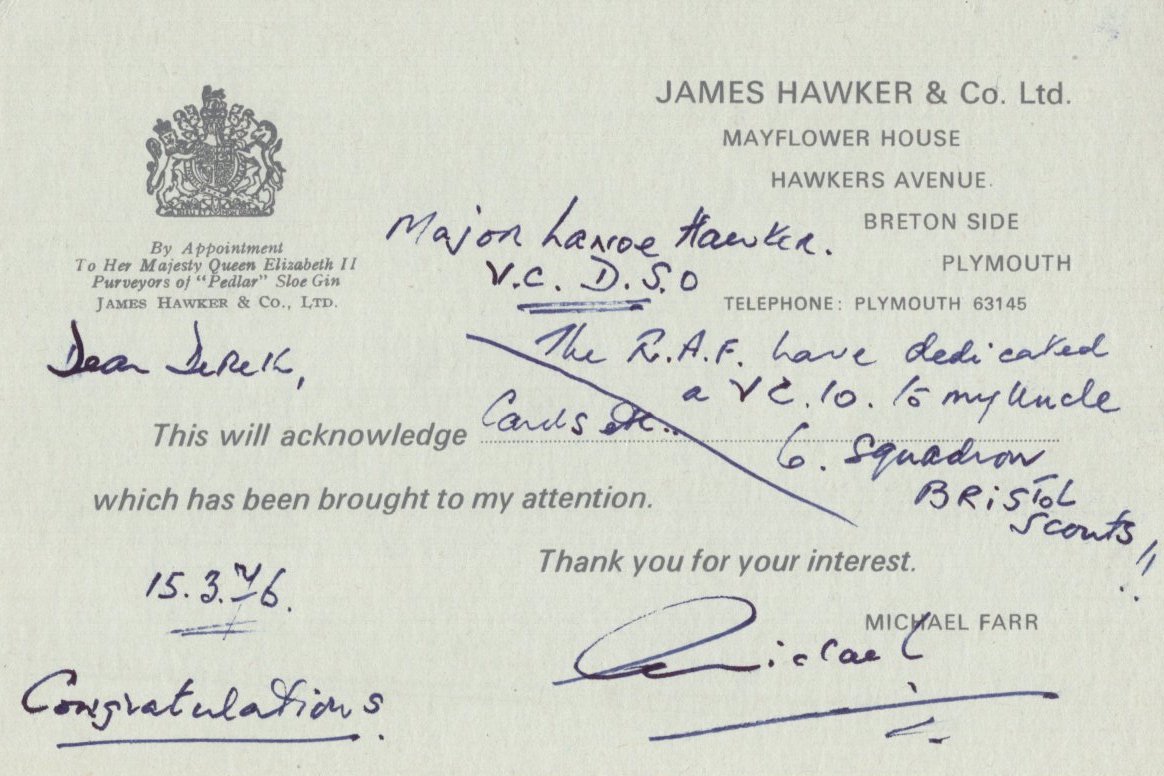 JAMES HAWKER & Co. Ltd.
MAYFLOWER HOUSE
HAWKERS AVENUE.
BRETON SIDE
PLYMOUTH
TELEPHONE: PLYMOUTH 63145
By Appointment
To Her Majesty Queen Elizabeth II
Purveyors of "Pedlar" Sloe Gin
JAMES HAWKER & CO., LTD.
Major Lanoe Hawker.
V.C. D.S.O
The R.A.F. have dedicated
a VC.10. to my Uncle
6. Squadron
BRISTOL
Scouts!!
Dear Derek,
This will acknowledge Cards etc..
which has been brought to my attention.
Thank you for your interest.
15.3.76.
MICHAEL FARR
Michael
Congratulations.